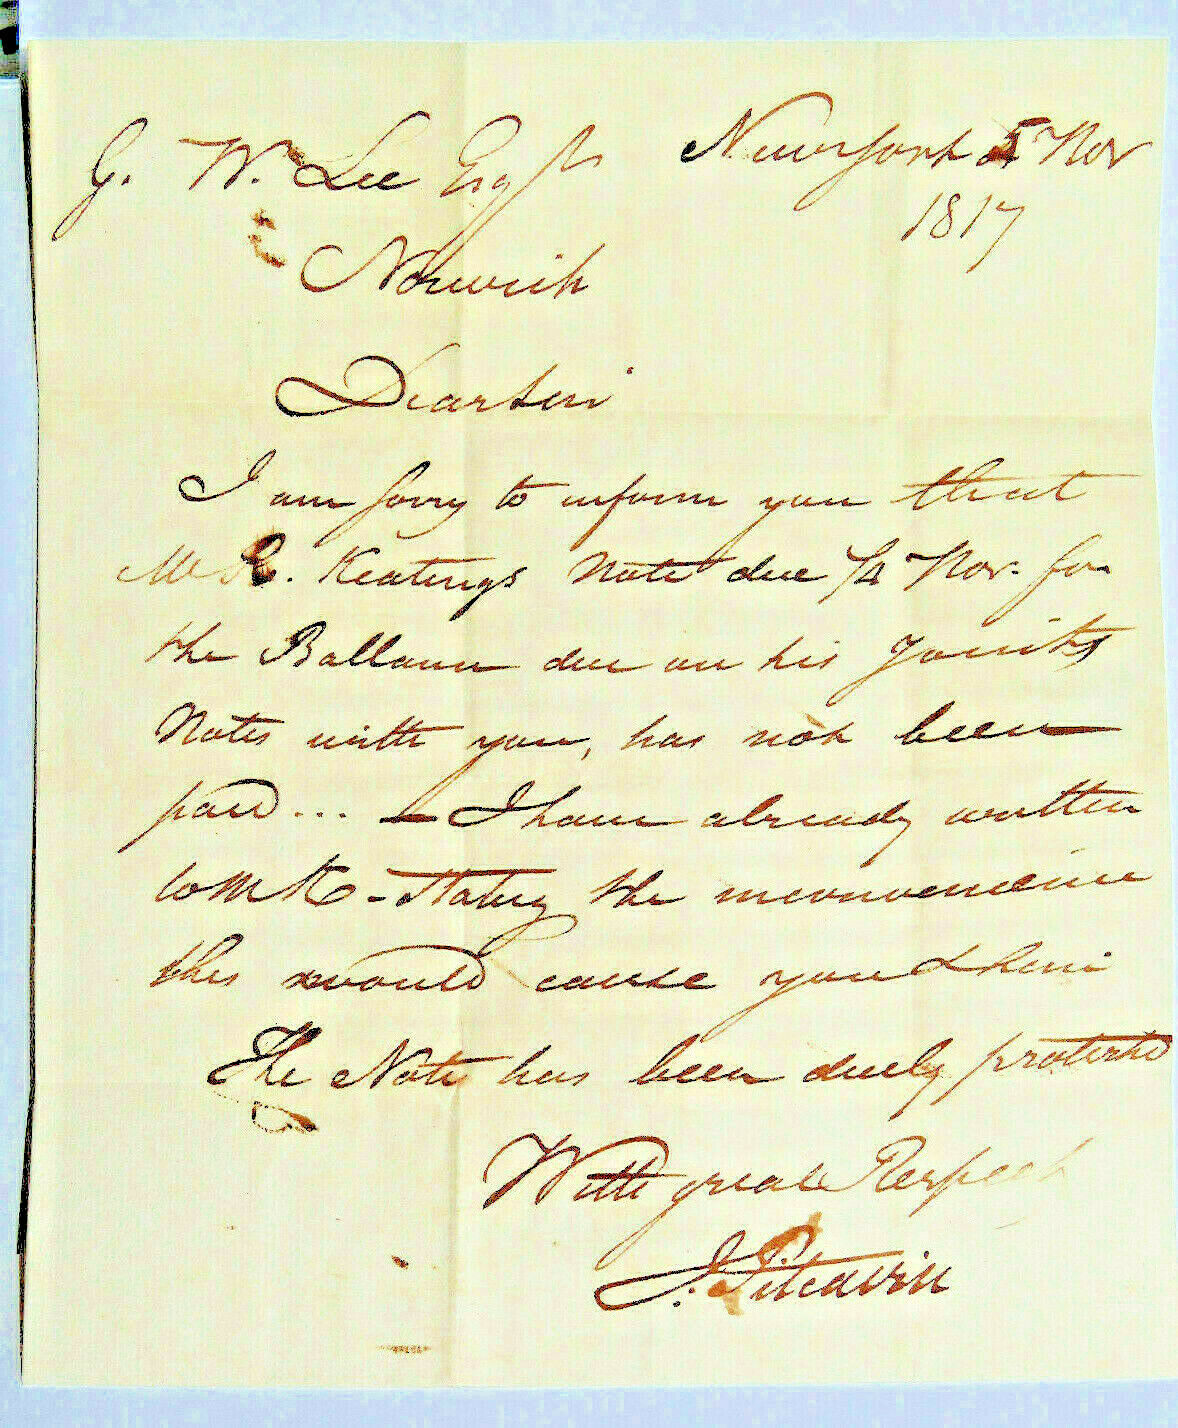 G. W. Lee Esqr New York 5 Nov
1817
Norwich
Dear Sir
I am sorry to inform you that
Mr R. Keatings Note due 1/4 Nov. for
the Ballance due on his Joints
Notes with you, has not been
paid ... — I have already written
to Mr K - Stating the inconvenience
this would cause you & him
The Note has been duely protested
With great Respect
J. Pitcairn